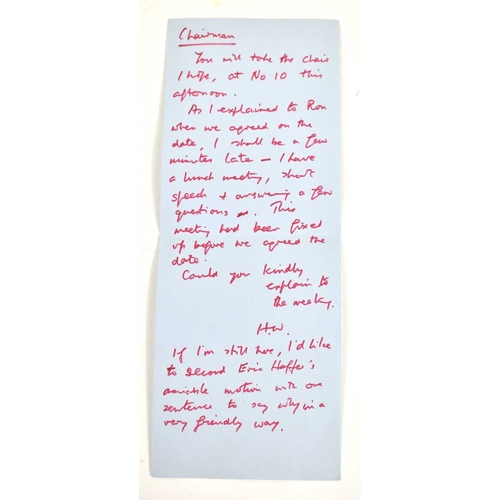 Chairman
You will take the chair
I hope, at No 10 this
afternoon.
As I explained to Ron
when we agreed on the
date, I shall be a few
minutes late – I have
a lunch meeting, short
speech + answering a few
questions. This
meeting had been fixed
up before we agreed the
date.
Could you kindly
explain to
the meeting.
H.W.
If I'm still here, I'd like
to second Eric Heffer's
amiable motion with one
sentence to say why in a
very friendly way.